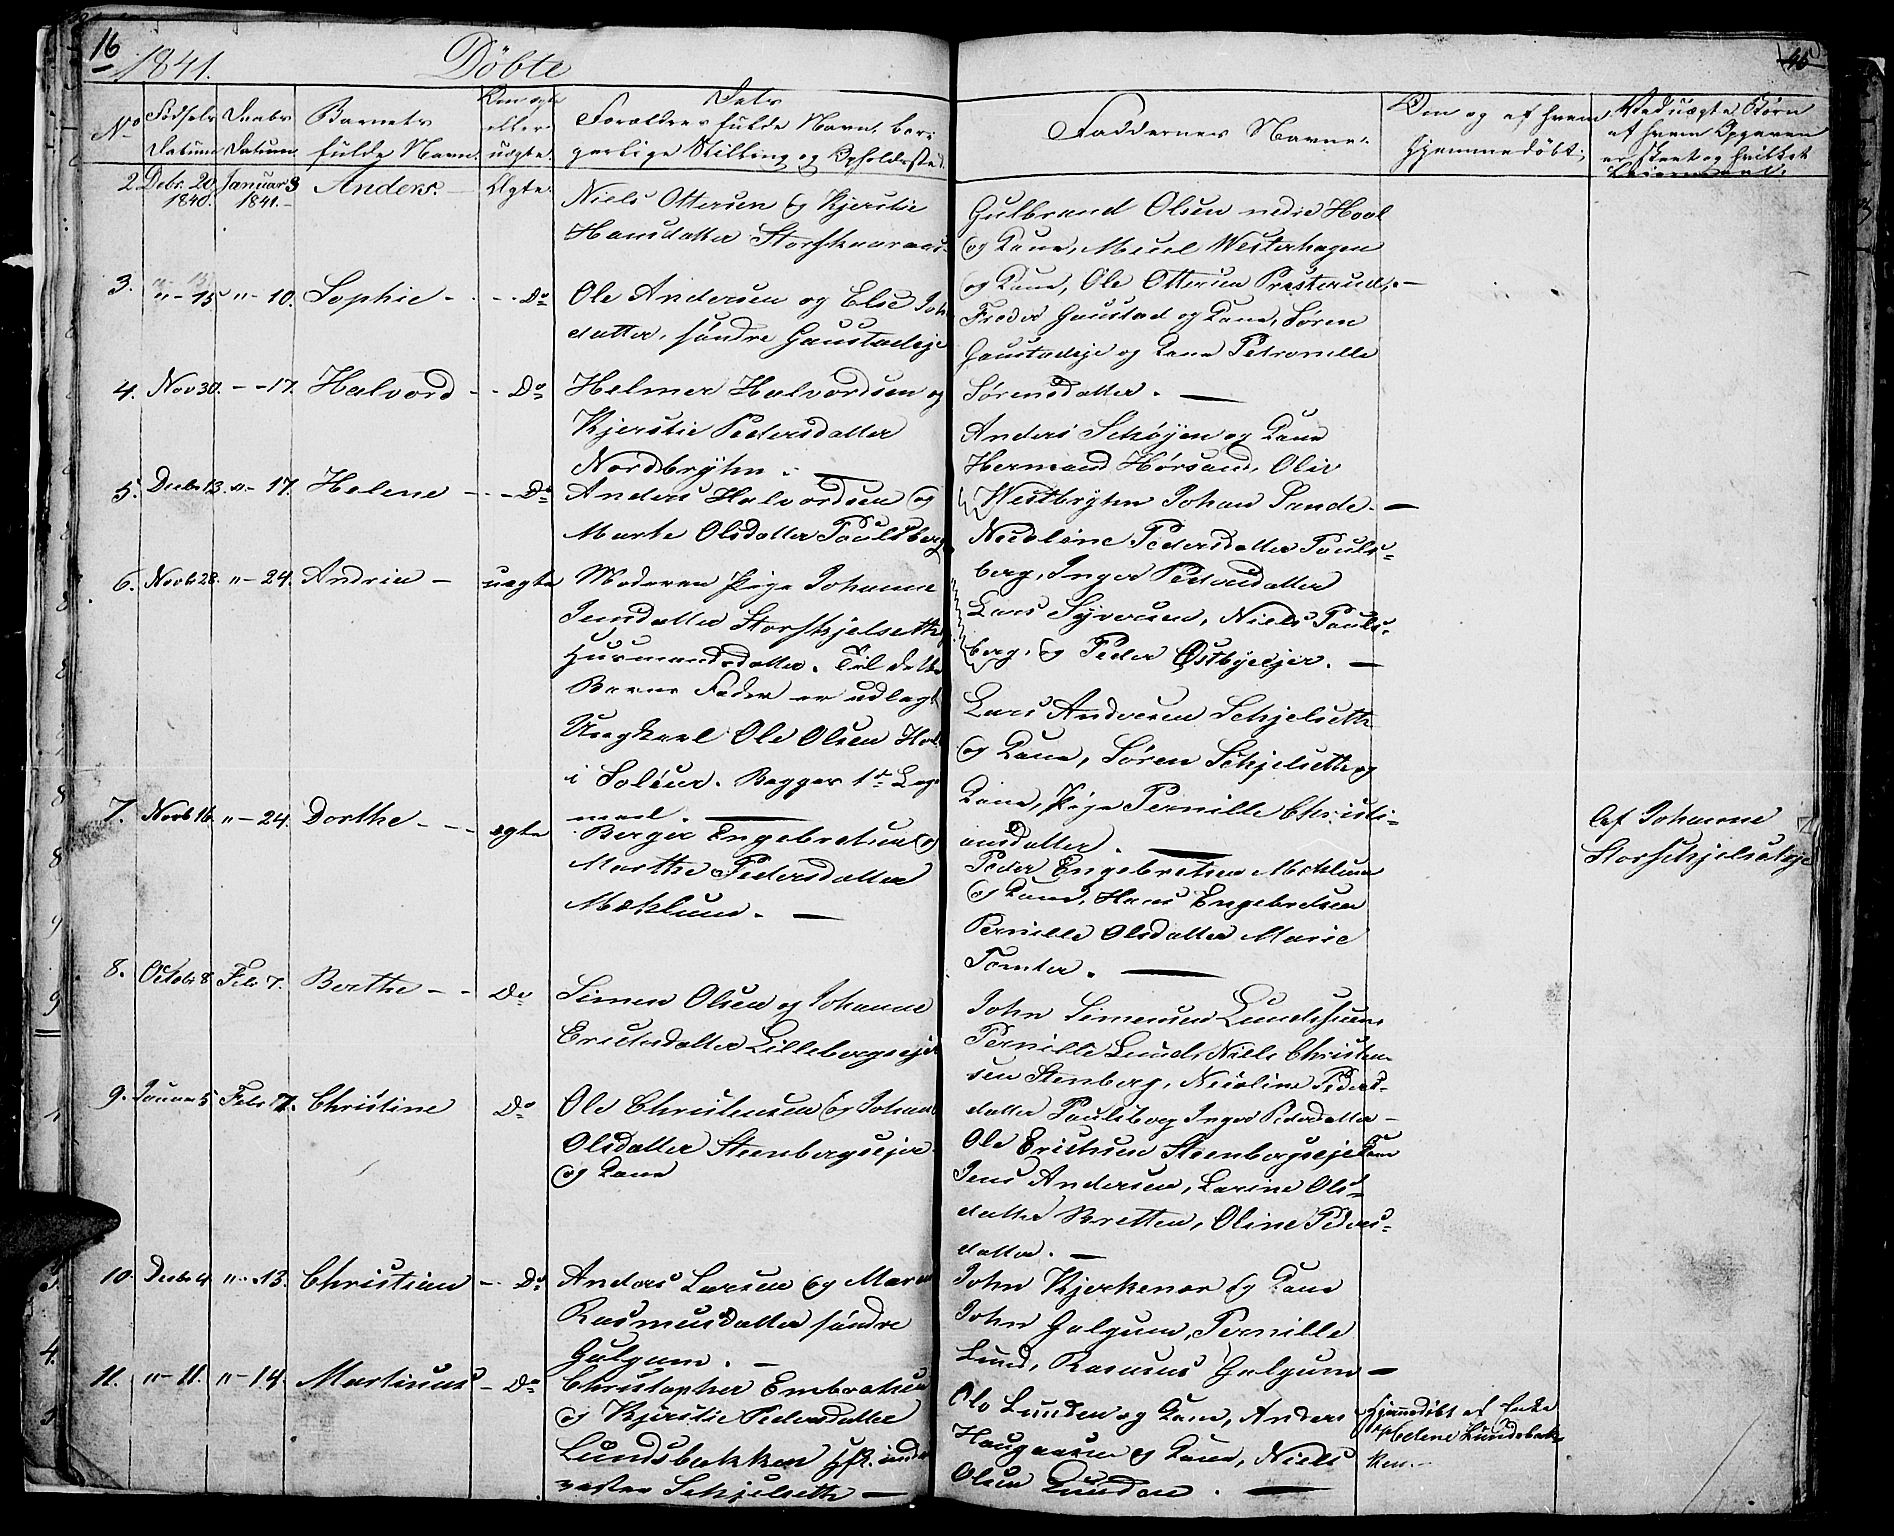 16
1841.
Döbte
46
No
Fødsels Datum
Daabs Datum
Barnets fulde Navn.
Om ægte eller uægte.
Dets Forældres fulde Navn, bor-
gerlige Stilling og Opholdssted.
Faddernes Navne.
Om og af hvem
Hjemmedöbt.
Ved uægte Börn
af hvem Opgaven
er skeet og hvilket
Leiermaal.
2. Debr. 20. 1840. Januar 3 1841. Anders. Ægte.
Niels Ottersen og Kjerstie
Hansdatter Storskaaraas
Gulbrand Olsen nedre Hool
og Kone, Westerhagen
og Kone, Ole Ottersen Presterud,
3. "-15 "-10. Sophie - Do
Ole Andersen og Else Joh
datter, søndre Gaustadeje
Gaustad og Kone, Sören
Gaustadeje og Kone Petronille
Sörensdatter.
4. Nov 30. - -17. Halvord - Do
Helmer Halvordsen og
Kjerstie Pedersdatter
Nordbryhn.
Anders Schöyen og Kone
Hermand Hörsand, Oliv
Westbryhn Johan Sande -
5. Decbr 13. "- 17. Helene - Do
Anders Halvordsen og
Marte Olsdatter Paulsberg
Nicoline Pedersdatter Pauls-
berg, Inger Pedersdatter
Lars Syversen, Niels Pauls-
berg, og Peder Østbyeejer. -
6. Novb 28. "- 24. Andrea - uægte
Moderen Pige Johanne
Jensdatter Storskjelseth,
Huusmandsdatter. Til dette
Barns Fader er udlagt
Ungkarl Ole Olsen
i Soløer. Begges 1ste Leger
maal.
Lars Andersen Schjelseth
og Kone, Sören Schjelseth og
Kone, Pige Pernille Christi-
ansdatter.
Af Johanne
Storschjelsetheje
7. Novb 16. "- 24. Dorthe - - - ægte
Berger Engebretsen og
Marthe Pedersdatter
Mæhlum.
Peder Engebretsen Mæhlum
og Kone, Hans Engebretsen
Pernille Olsdatter Marie
Tomter.
8. Octobr 8 Febr 7. Berthe - - Do
Simen Olsen og Johanne
Ersdatter Lillebergseje
John Simensen
Pernille Lund, Niels Christen-
sen Stenberg, Nicoline Peders-
datter Paulsberg Inger Pedersdatter -
9. Januar 5 Febr 7. Christine Do
Ole Christensen og Johanne
Olsdatter Steenbergsejer
og Kone
Ole Erichsen Steenbergseje Kone
Jens Andersen, Karine Ols-
datter Bretten, Oline Peders-
datter. -
10. Decbr 4 "- 13. Christian - Do
Anders Larsen og Maren
Rasmusdatter søndre
Galgum. -
John Kjerkenær og Kone
John Galgum, Pernille
Lund, Rasmus Galgum -
11. "- 11. "- 14. Martinus - Do
Christopher Embretsen
og Kjerstie Pedersdatter
Lundsbakken
Schjelseth -
Ole Lunden og Kone, Anders
Haugaasen og Kone, Niels
Olsen Lunden.
Hjemmedöbt af Enke
Helene Lundsbak-
ken.